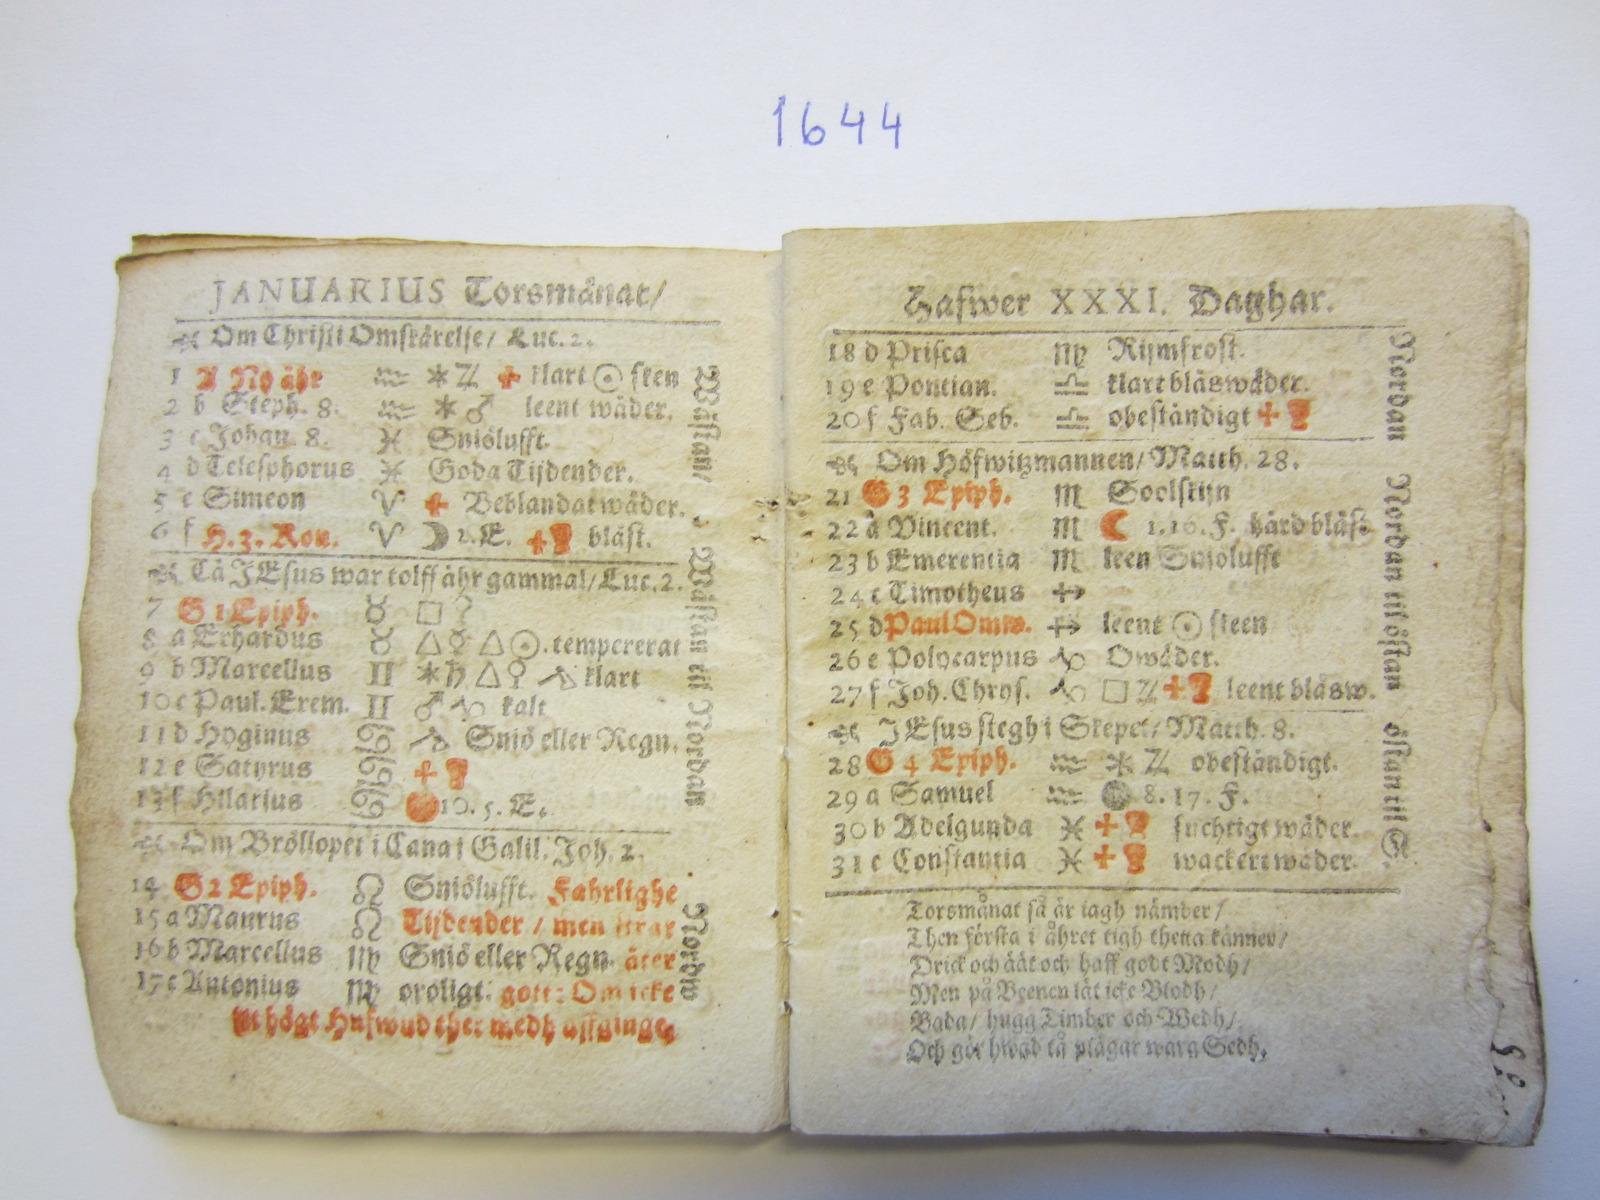 1644
JANUARIUS Torsmånat/
Om Christi Omskärelse/ Luc. 2.
1 A Ny ähr ♒ ✶ ♃ ✚ klart ☉ sken
2 b Steph. 8. ♒ ✶ ♂ leent wäder.
3 c Johan. 8. ♓ Sniölufft.
4 d Telesphorus ♓ Goda Tijdender.
5 e Simeon ♈ ✚ Beblandat wäder.
6 f H. 3. Kon. ♈ ☽ 2. E. ✚ bläst.
Tå JEsus war tolff åhr gammal/ Luc. 2.
7 G 1 Epiph. ♉ □
8 a Erhardus ♉ △ ☿ △ ☉. tempererat
9 b Marcellus ♊ ✶ ♄ △ ♀ klart
10 c Paul. Erem. ♊ ♂ kalt
11 d Hyginus ♋ Sniö eller Regn.
12 e Satyrus ♋ ✚
13 f Hilarius ♋ 10. 5. E.
Om Bröllopet i Cana i Galil. Joh. 2.
14 G 2 Epiph. ♌ Sniölufft. Fahrlighe
15 a Maurus ♌ Tijdender / men strax
16 b Marcellus ♍ Sniö eller Regn. åter
17 c Antonius ♍ oroligt. gott: Om icke
et högt Hufwud ther medh affginge.
Wästan/
Wästan til Nordan
Nordw
Hafwer XXXI. Daghar.
18 d Prisca ♍ Rijmfrost.
19 e Pontian. ♎ klart bläswäder.
20 f Fab. Seb. ♎ obeständigt ✚
Om Höfwitzmannen/ Matth. 28.
21 G 3 Epiph. ♏ Soolskijn
22 a Vincent. ♏ ☾ 1. 16. F. hård bläst
23 b Emerentia ♏ leen Sniölufft
24 c Timotheus ♐
25 d Paul Omw. ♐ leent ☉ skeen
26 e Polycarpus ♑ Owäder.
27 f Joh. Chrys. ♑ □ ♃ ✚ leent bläsw.
JEsus stegh i Skepet/ Matth. 8.
28 G 4 Epiph. ♒ ✶ ♃ obeständigt.
29 a Samuel ♒ 8. 17. F.
30 b Adelgunda ♓ ✚ fuchtigt wäder.
31 c Constantia ♓ ✚ wackert wäder.
Nordan Nordan til östan östan til S.
Torsmånat så är iagh nämder/
Then första i åhret tigh thetta känner/
Drick och äät och haff godt Modh/
Men på Beenen lät icke Blodh/
Bada/ hugg Timber och Wedh/
Och gör hwad tå plägar wara Sedh.